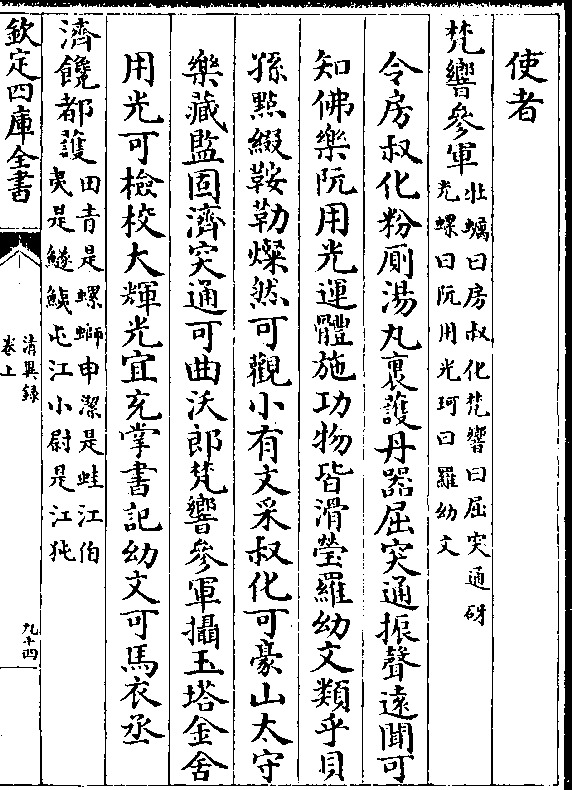 使者
梵響參軍牡蠣曰房叔化梵響曰屈突通砑
光螺曰阮用光珂曰羅幼文
令房叔化粉厠湯丸裏護丹器屈突通振聲遠聞可
知佛樂阮用光運體施功物皆滑瑩羅幼文類乎貝
孫點綴鞍勒燦然可觀小有文采叔化可豪山太守
樂藏監固濟突通可曲沃郎梵響參軍攝玉塔金舍
用光可檢校大輝光宜充掌書記幼文可馬衣丞
濟饞都護田青是螺螄申潔是蛙江伯
夷是鱁鮧屯江小尉是江㹠
欽定四庫全書
清異録
卷上
九十四